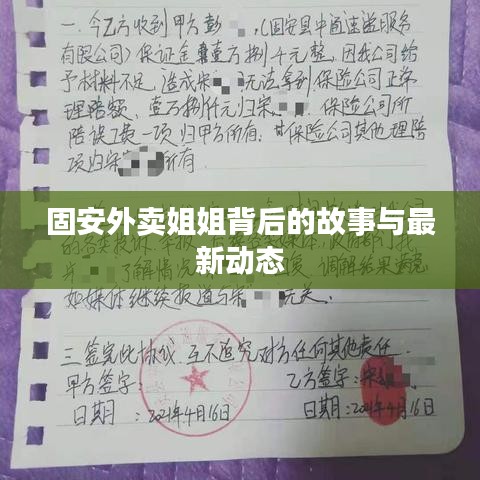 一.今乙方收到甲方彭 (固安县申通速运服务
有限公司)保证金壹万捌千元整,因我公司给
予材料不足,造成宋 无法拿到保险公司正常
理赔额,壹万捌仟元归宋 .保险公司所
陪误工费一项归甲方所有.其保险公司其他理陪
项归宋 所有.
固安外卖姐姐背后的故事与最
新动态
了解情况 调解结果满意
如媒体继续报道与宋 无关.
三.签完此协议,互不追究对方任何其他责任.
甲方签字: 乙方签字:宋
日期: 2021年4月16日 日期:2021年4月16日